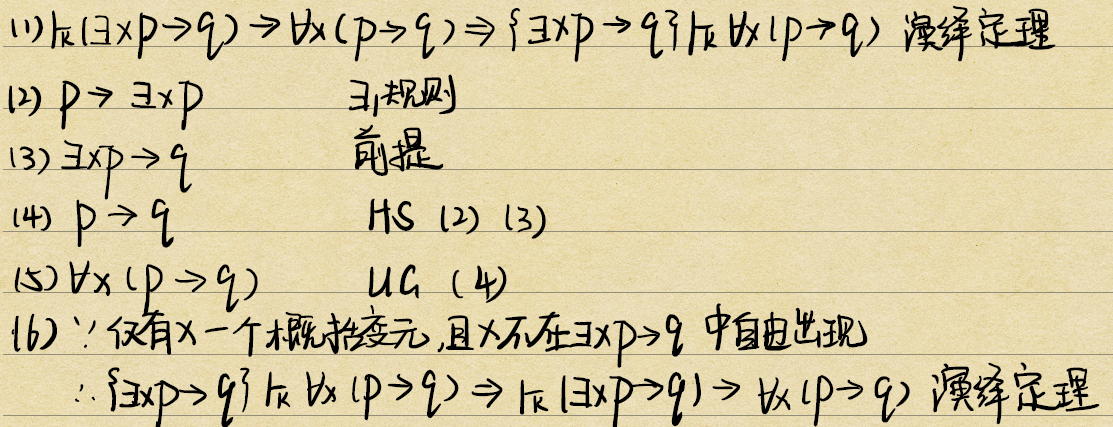 (1) ⊢K (∃xp→q)→∀x(p→q)⇒{∃xp→q}⊢K ∀x(p→q) 演绎定理
(2) p→∃xp ∃₁规则
(3) ∃xp→q 前提
(4) p→q HS (2) (3)
(5) ∀x(p→q) UG (4)
(6) ∵仅有x一个概括变元,且x不在∃xp→q中自由出现
∴{∃xp→q}⊢K ∀x(p→q)⇒⊢K (∃xp→q)→∀x(p→q) 演绎定理